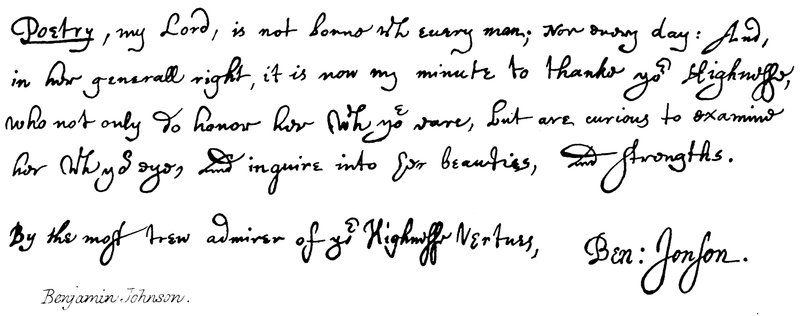 Poetry, my Lord, is not borne wth euery man; Nor euery day: And,
in her generall right, it is now my minute to thanke yor Highnesse,
who not only do honor her wth yor eare, but are curious to examine
her wth yor eye, and inquire into her beauties, and strengths.
By the most trew admirer of yor Highnesse Vertues,
Ben: Jonson.
Benjamin Johnson.